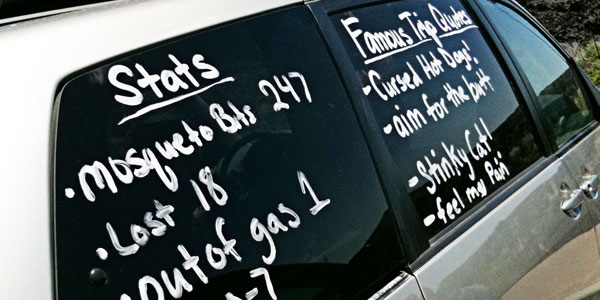 Stats
• Mosqueto Bits 247
• Lost 18
out of gas 1
-7
Famous Trip Quotes
- Cursed Hot Dogs!
- aim for the butt
- Stinky Cat!
- feel my Pain